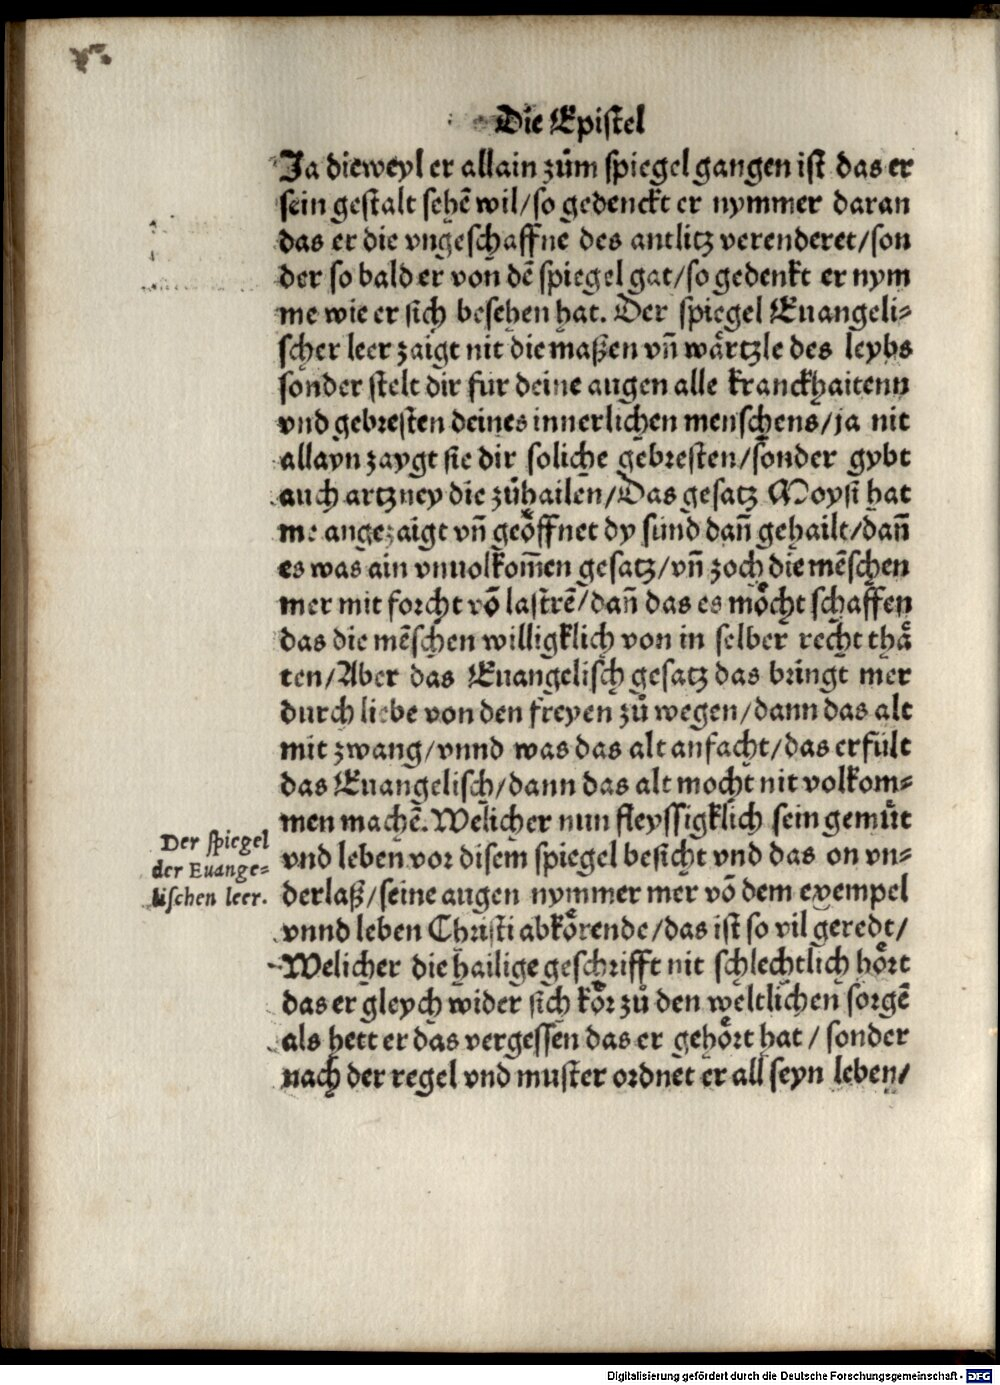 Die Epistel
Ja dieweyl er allain zům spiegel gangen ist das er
sein gestalt sehẽ wil/so gedenckt er nymmer daran
das er die vngeschaffne des antlitz verenderet/son
der so bald er von dẽ spiegel gat/so gedenkt er nym
me wie er sich besehen hat. Der spiegel Euangeli⸗
scher leer zaigt nit die maßen vñ wårtzle des leybs
sonder stelt dir fur deine augen alle kranckhaitenn
vnd gebresten deines innerlichen menschens/ja nit
allayn zaygt sie dir soliche gebresten/sonder gybt
auch artzney die zůhailen/Das gesatz Moysi hat
me angezaigt vñ geöffnet dy sünd dañ gehailt/dañ
es was ain vnuolkom̃en gesatz/vñ zoch die mẽschen
mer mit forcht võ lastrẽ/dañ das es möcht schaffen
das die mẽschen willigklich von in selber recht thå
ten/Aber das Euangelisch gesatz das bringt mer
durch liebe von den freyen zů wegen/dann das alt
mit zwang/vnnd was das alt anfacht/das erfült
das Euangelisch/dann das alt mocht nit volkom⸗
men machẽ. Welicher nun fleyssigklich sein gemüt
Der spiegel
der Euange-
lischen leer.
vnd leben vor disem spiegel besicht vnd das on vn⸗
derlaß/seine augen nymmer mer võ dem exempel
vnnd leben Christi abkörende/das ist so vil geredt/
Welicher die hailige geschrifft nit schlechtlich hört
das er gleych wider sich kör zů den weltlichen sorgẽ
als hett er das vergessen das er gehört hat / sonder
nach der regel vnd muster ordnet er all seyn leben/
Digitalisierung gefördert durch die Deutsche Forschungsgemeinschaft - DFG